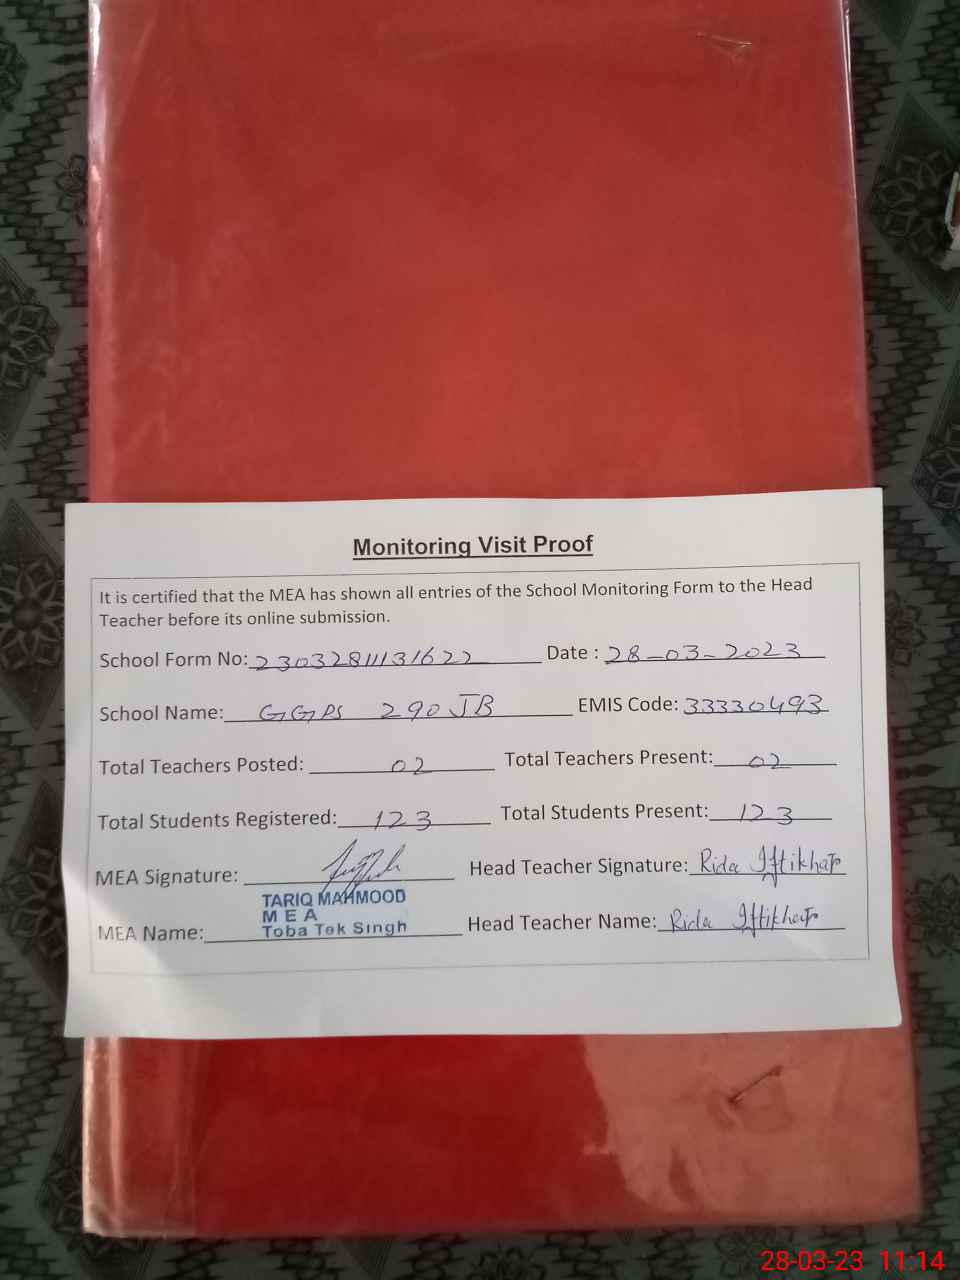 Monitoring Visit Proof
It is certified that the MEA has shown all entries of the School Monitoring Form to the Head
Teacher before its online submission.
School Form No: 23032811131622 Date : 28-03-2023
School Name: GGPS 290 JB EMIS Code: 33330493
Total Teachers Posted: 02 Total Teachers Present: 02
Total Students Registered: 123 Total Students Present: 123
MEA Signature: Head Teacher Signature: Rida Iftikhar
TARIQ MAHMOOD
M E A
MEA Name: Toba Tek Singh Head Teacher Name: Rida Iftikhar
28-03-23 11:14